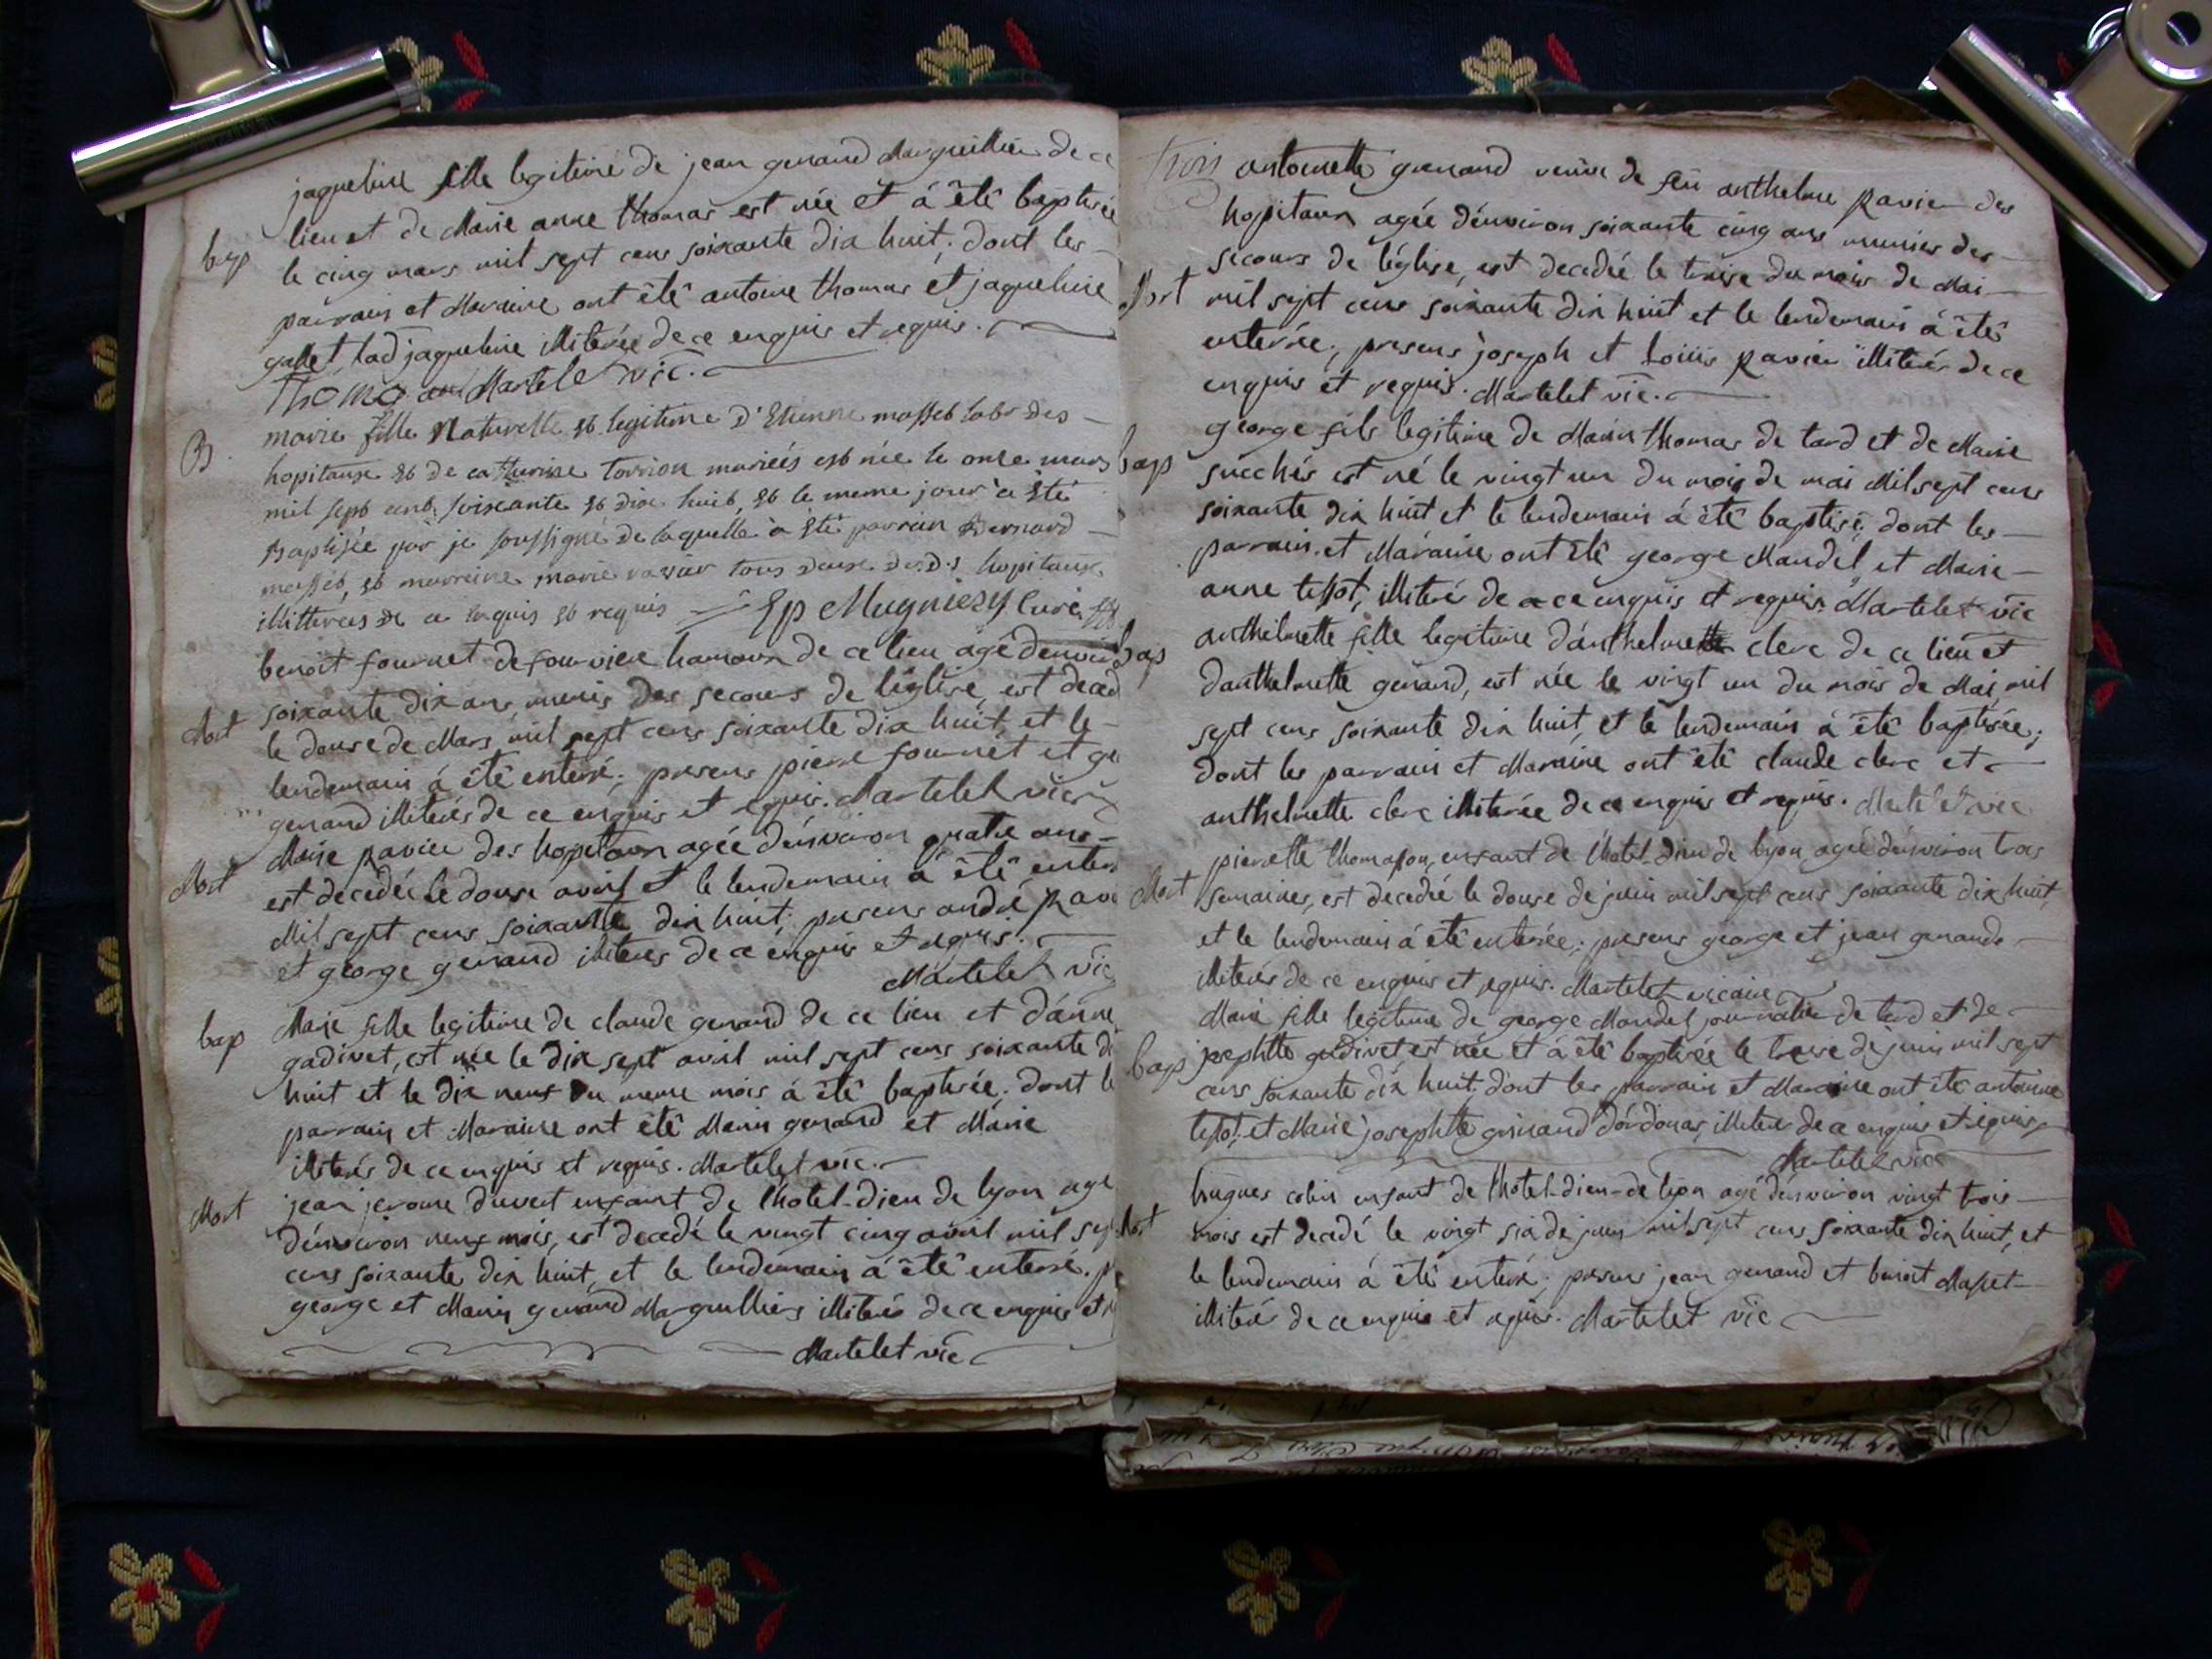 jaqueline fille legitime de jean genand Marguillier de ce
bap
lieu et de Marie anne thomas est née et á êtê baptisée
le cinq mars mil sept cens soixante dix huit; dont les
parrain et Maraine ont êtê antoine thomas et jaqueline
gallet, lad jaqueline illiterée de ce enquis et requis.
Thoma Martelet vic.
B.
marie fille Naturelle et legitime d'Etienne masset labr des
hopitaux et de catherine torrion mariées est née le onze mars
mil sept cent soixante et dix huit, et le meme jour a eté
Baptisée par je soussigné de laquelle a été parrain Bernard
masset, et marreine marie ravier tous deux desd.s hopitaux
illitterées de ce enquis et requis Curé
benoit fournet de fourviere hamaux de ce lieu agé denviron
soixante dix ans, munis des secours de l'église, est deced
Mort
le douse de Mars mil sept cens soixante dix huit, et le
lendemain á êtê enterré; presens pierre fournet et
genand illiterés de ce enquis et requis. Martelet vic
Marie pavier des hopitaux agée d'environ quatre ans
Mort
est decedée le douse avril et le lendemain á êtê enter
Mil sept cens soixante dix huit; presens andré pavi
et george genand illiteres de ce enquis et requis.
Martelet vic
bap
Marie fille legitime de claude genand de ce lieu et d'anne
gadivet, est née le dix sept avril mil sept cens soixante di
huit et le dix neuf du meme mois á êtê baptisée; dont le
parrain et Maraine ont êtê Marin genand et Marie
illiterés de ce enquis et requis. Martelet vic.
Mort
jean jerome duvert enfant de l'hotel-dieu de lyon agé
d'environ neuf mois, est decedé le vingt cinq avril mil sep
cens soixante dix huit, et le lendemain á êtê enterré.
george et Marin genand Marguilliers illiterés de ce enquis et
Martelet vic
trois
antoinette genand veuve de feu anthelme pavier des
hopitaux agée d'environ soixante cinq ans munies des
secours de l'église, est decedée le treise du mois de Mai
Mort
mil sept cens soixante dix huit et le lendemain á êtê
enterrée; presens joseph et loüis pavier illiterés de ce
enquis et requis. Martelet vic.
george fils legitime de Marin thomas de tard et de Marie
bap
est né le vingt un du mois de mai Mil sept cens
soixante dix huit et le lendemain á êtê baptisé, dont les
parrain et Maraine ont êtê george Mandel et Marie
anne tissot, illiterés de ce enquis et requis. Martelet vic
anthelmette fille legitime d'anthelme clerc de ce lieu et
bap
d'anthelmette genand, est née le vingt un du mois de Mai mil
sept cens soixante dix huit, et le lendemain á êtê baptisée;
dont les parrain et Maraine ont êtê claude clerc et
anthelmette clerc illiterée de ce enquis et requis. Martelet vic
pierrette thomason, enfant de l'hotel-dieu de lyon agée d'environ trois
Mort
semaines, est decedée le douse de juin mil sept cens soixante dix huit,
et le lendemain á êtê enterrée; presens george et jean genands
illiterés de ce enquis et requis. Martelet vicaire
Marie fille legitime de george Mandel journalier de tard et de
bap
josephtte gadivet, est née et á êtê baptisée le treise de juin mil sept
cens soixante dix huit; dont les parrain et Maraine ont été antoine
tissot et Marie josephtte d'ordonas, illiteres de ce enquis et requis
Martelet vic
hugues colin enfant de l'hotel-dieu-de lyon agé d'environ vingt trois
Mort
mois est decedé le vingt six de juin mil sept cens soixante dix huit, et
le lendemain á êtê enterré; presens jean genand et benoit Masset
illiterés de ce enquis et requis. Martelet vic